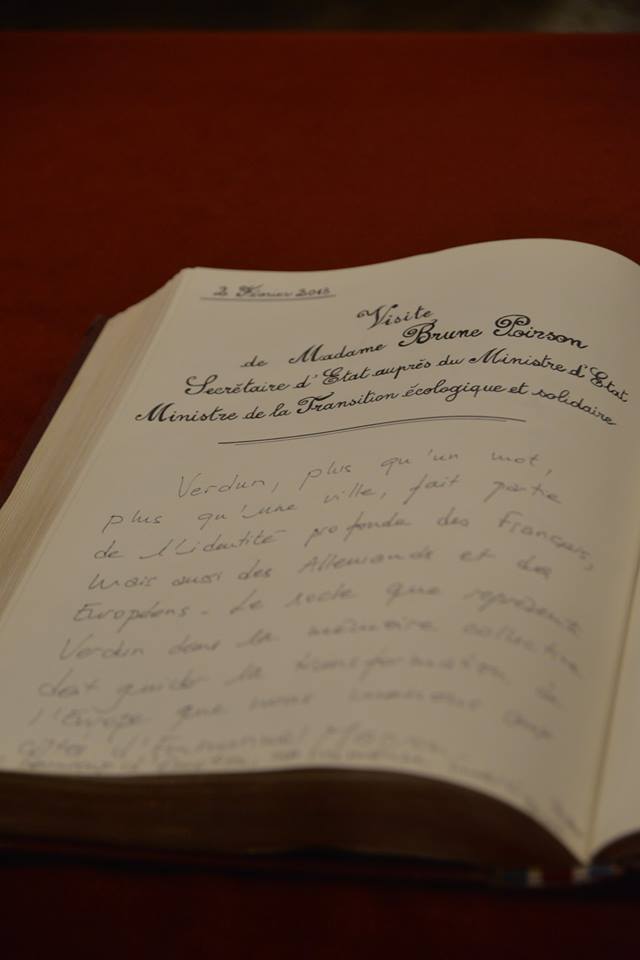 2 Février 2018
Visite
de Madame Brune Poirson
Secrétaire d'Etat auprès du Ministre d'Etat,
Ministre de la Transition écologique et solidaire
Verdun, plus qu'un mot,
plus qu'une ville, fait partie
de l'identité profonde des Français,
mais aussi des Allemands et des
Européens. Le socle que représente
Verdun dans la mémoire collective
doit guider la transformation de
l'Europe que nous
côtés d'Emmanuel Macron